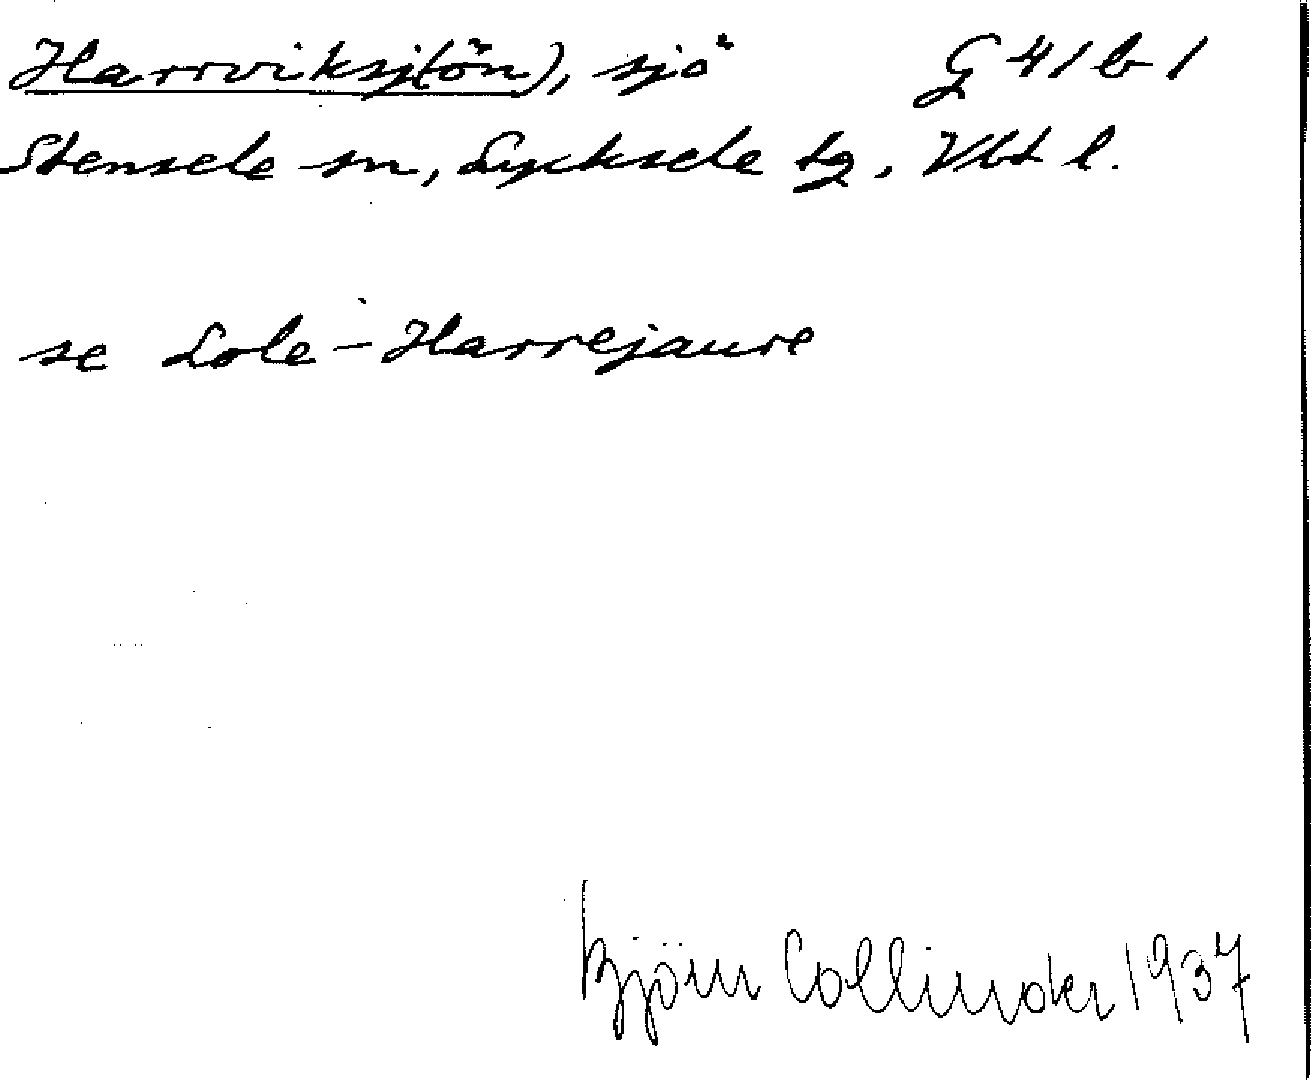 Harrviksj(ön), sjö G 41 b 1
Stensele sn, Lycksele tg, Vbt l.
se Lole-Harrejaure
Björn Collinder 1937